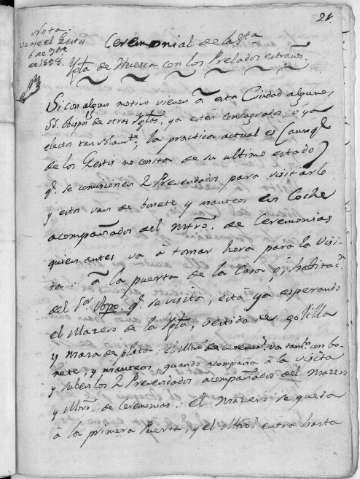 21
Nota
Vease el Gestis
de 1858.
Ceremonial de la Sta
Ygla de Huesca con los Prelados estraños.
Si con algun motivo vienen a esta Ciudad algunos
Sres Obispos de otras Yglas, ya esten consagrados, o ya
electos tan solamte, la practica actual es (aunqe
de los Gestis no consta de su ultimo estado)
qe se comisionen 2 Prevendados para visitarlo
y estos van de bonete y manteos en Coche
acompañados del Mtro. de Ceremonias
quien antes va à tomar hora para la visi-
ta: à la puerta de la Casa o habitacn
del Sor Obpo qe se visita, està ya esperando
el Macero de la Ygla, vestido de golilla
y maza de plata. el Mtro de cerem. va tambn con bo-
nete, y manteos, quando acompaña à la visita
y suben los 2 Prevendados acompañados del Macero
y Mtro. de Ceremonias. el Macero se queda
à la primera puerta, y el Mtro entra hasta